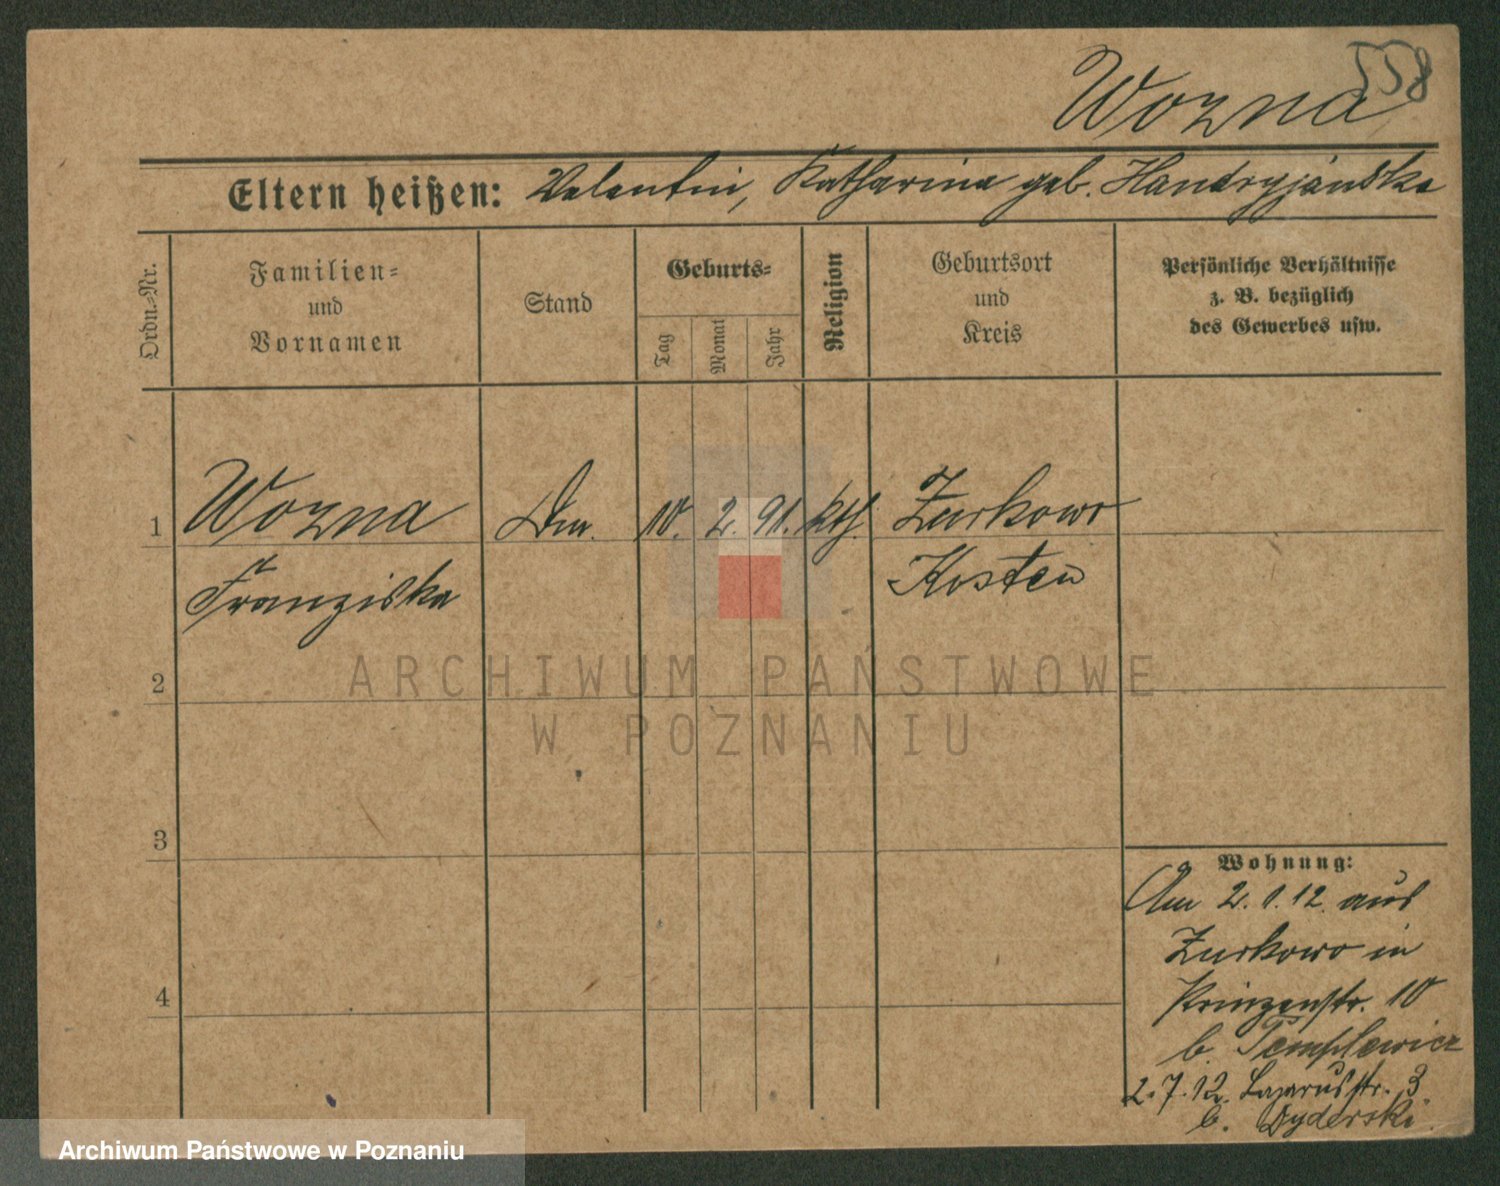 558
Wozna
Eltern heißen: Valentin, Katharina geb. Handryjańska
Ordn.-Nr.
Familien-
und
Vornamen
Stand
Geburts-
Tag
Monat
Jahr
Religion
Geburtsort
und
Kreis
Persönliche Verhältnisse
z. B. bezüglich
des Gewerbes usw.
1 Wozna 10. 2. 91. kth. Zurkowo
Franziska Kosten
2
ARCHIWUM PAŃSTWOWE
W POZNANIU
3
Wohnung:
Am 2.1.12. aus
Zurkowo in
4
Prinzenstr. 10
b. Templewicz
2.7.12. Lazarusstr. 3
b. Dyderski.
Archiwum Państwowe w Poznaniu